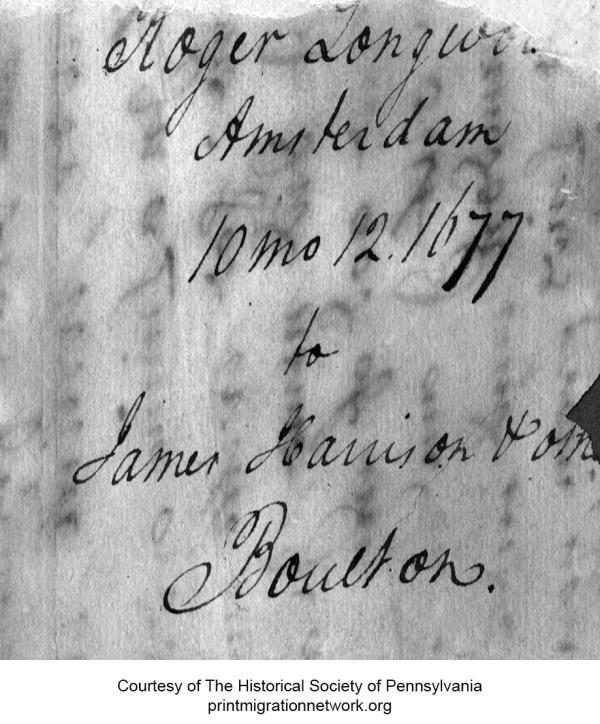 Roger Longwor
Amsterdam
10 mo 12. 1677
to
James Harrison &
Boulton.
Courtesy of The Historical Society of Pennsylvania
printmigrationnetwork.org